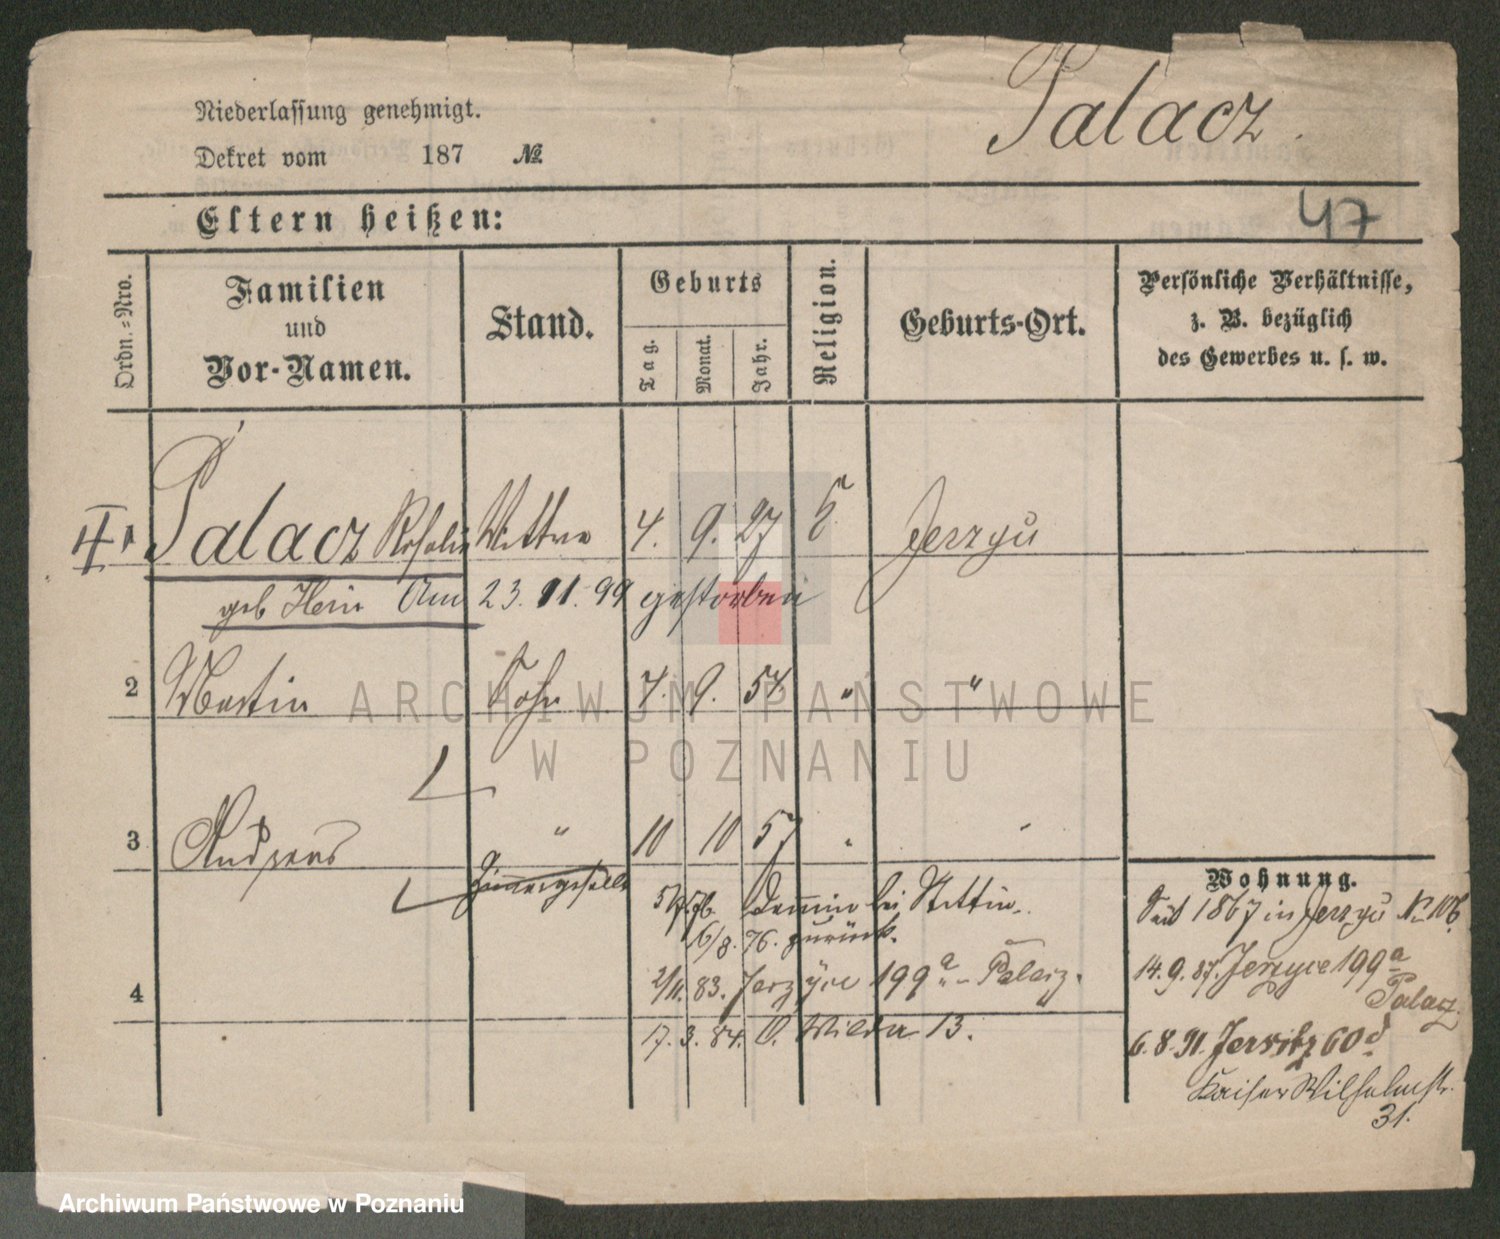 Niederlassung genehmigt.
Palacz.
Dekret vom 187 №
Eltern heißen:
47
Ordn.=Nro.
Familien
und
Vor-Namen.
Stand.
Geburts
Tag.
Monat.
Jahr.
Religion.
Geburts-Ort.
Persönliche Verhältnisse,
z. B. bezüglich
des Gewerbes u. s. w.
Palacz Rosalie Wittwe 4. 9. 27 Jerzyü
geb Hein Am 23. 11. 99 gestorben
2 Martin Sohn 7. 9. 54. " "
3 Andreas " 10 10 57 " "
Wohnung.
bei Stettin.
Seit 1867 in Jerzyü № 106.
16/8. 76. zurück.
14. 9. 87. Jerzyce 199a
Palacz.
4
2/11. 83. Jerzyce 199a - Palacz.
17. 3. 84. O. Wilda 13.
6. 8. 91. Jersitz 60d
Kaiser Wilhelmstr.
31.
ARCHIWUM PAŃSTWOWE
W POZNANIU
Archiwum Państwowe w Poznaniu